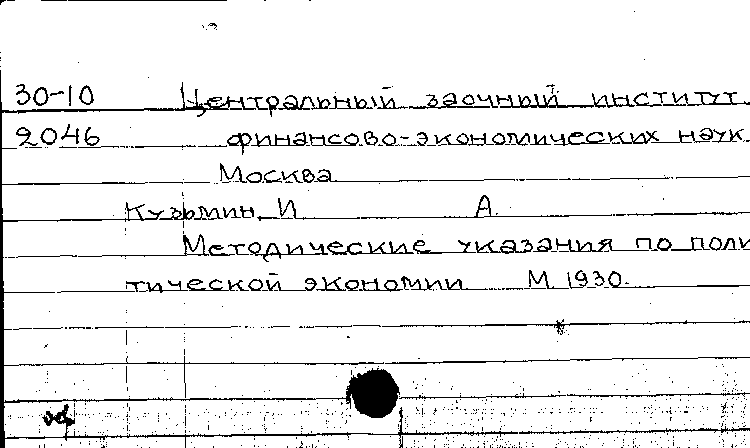 30-10 Центральный заочный институт
2046 финансово-экономических наук
Москва
Кузьмин, И А.
Методические указания по поли
тической экономии М. 1930.